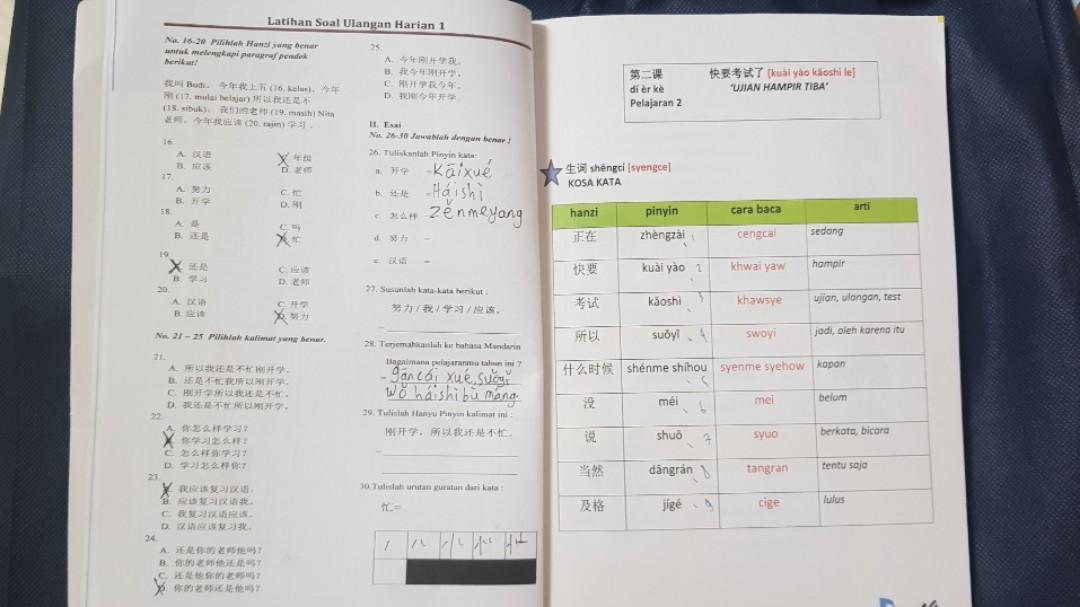 Latihan Soal Ulangan Harian 1
No. 16-20 Pilihlah Hanzi yang benar
untuk melengkapi paragraf pendek
berikut!
我叫 Budi。今年我上五 (16. kelas)。今年
刚 (17. mulai belajar) 所以我还是不
(18. sibuk)。 我们的老师 (19. masih) Nita
老师。今年我应该 (20. rajin) 学习 。
16.
A. 汉语 C. 年级
B. 应该 D. 老师
17.
A. 努力 C. 忙
B. 开学 D. 刚
18.
A. 是 C. 吗
B. 还是 D. 忙
19.
A. 还是 C. 应该
B. 学习 D. 老师
20.
A. 汉语 C. 开学
B. 应该 D. 努力
No. 21 – 25 Pilihlah kalimat yang benar.
21.
A. 所以我还是不忙刚开学。
B. 还是不忙我所以刚开学。
C. 刚开学所以我还是不忙。
D. 我还是不忙所以刚开学。
22.
A. 你怎么样学习?
B. 你学习怎么样?
C. 怎么样你学习?
D. 学习怎么样你?
23.
A. 我应该复习汉语。
B. 应该复习汉语我。
C. 我复习汉语应该。
D. 汉语应该复习我。
24.
A. 还是你的老师他吗?
B. 你的老师他还是吗?
C. 还是他你的老师吗?
D. 你的老师还是他吗?
25.
A. 今年刚开学我。
B. 我今年刚开学。
C. 刚开学我今年。
D. 我刚今年开学。
II. Esai
No. 26-30 Jawablah dengan benar !
26. Tuliskanlah Pinyin kata:
a. 开学 = Kāixué
b. 还是 = Háishì
c. 怎么样 Zěnmeyang
d. 努力 –
e. 汉语 –
27. Susunlah kata-kata berikut :
努力 / 我 / 学习 / 应该。
28. Terjemahkanlah ke bahasa Mandarin
Bagaimana pelajaranmu tahun ini ?
– gāncái xué, suǒyǐ
wǒ háishì bù máng.
29. Tulislah Hanyu Pinyin kalimat ini :
刚开学，所以我还是不忙。
30.Tulislah urutan guratan dari kata :
忙=
第二课 快要考试了 [kuài yào kǎoshì le]
dí èr kè 'UJIAN HAMPIR TIBA'
Pelajaran 2
生词 shēngcí [syengce]
KOSA KATA
hanzi pinyin cara baca arti
正在 zhèngzài 1 cengcai sedang
快要 kuài yào 2 khwai yaw hampir
考试 kǎoshì 3 khawsye ujian, ulangan, test
所以 suǒyǐ 4 swoyi jadi, oleh karena itu
什么时候 shénme shíhou 5 syenme syehow kapan
没 méi 6 mei belum
说 shuō 7 syuo berkata, bicara
当然 dāngrán 8 tangran tentu saja
及格 jígé 9 cige lulus